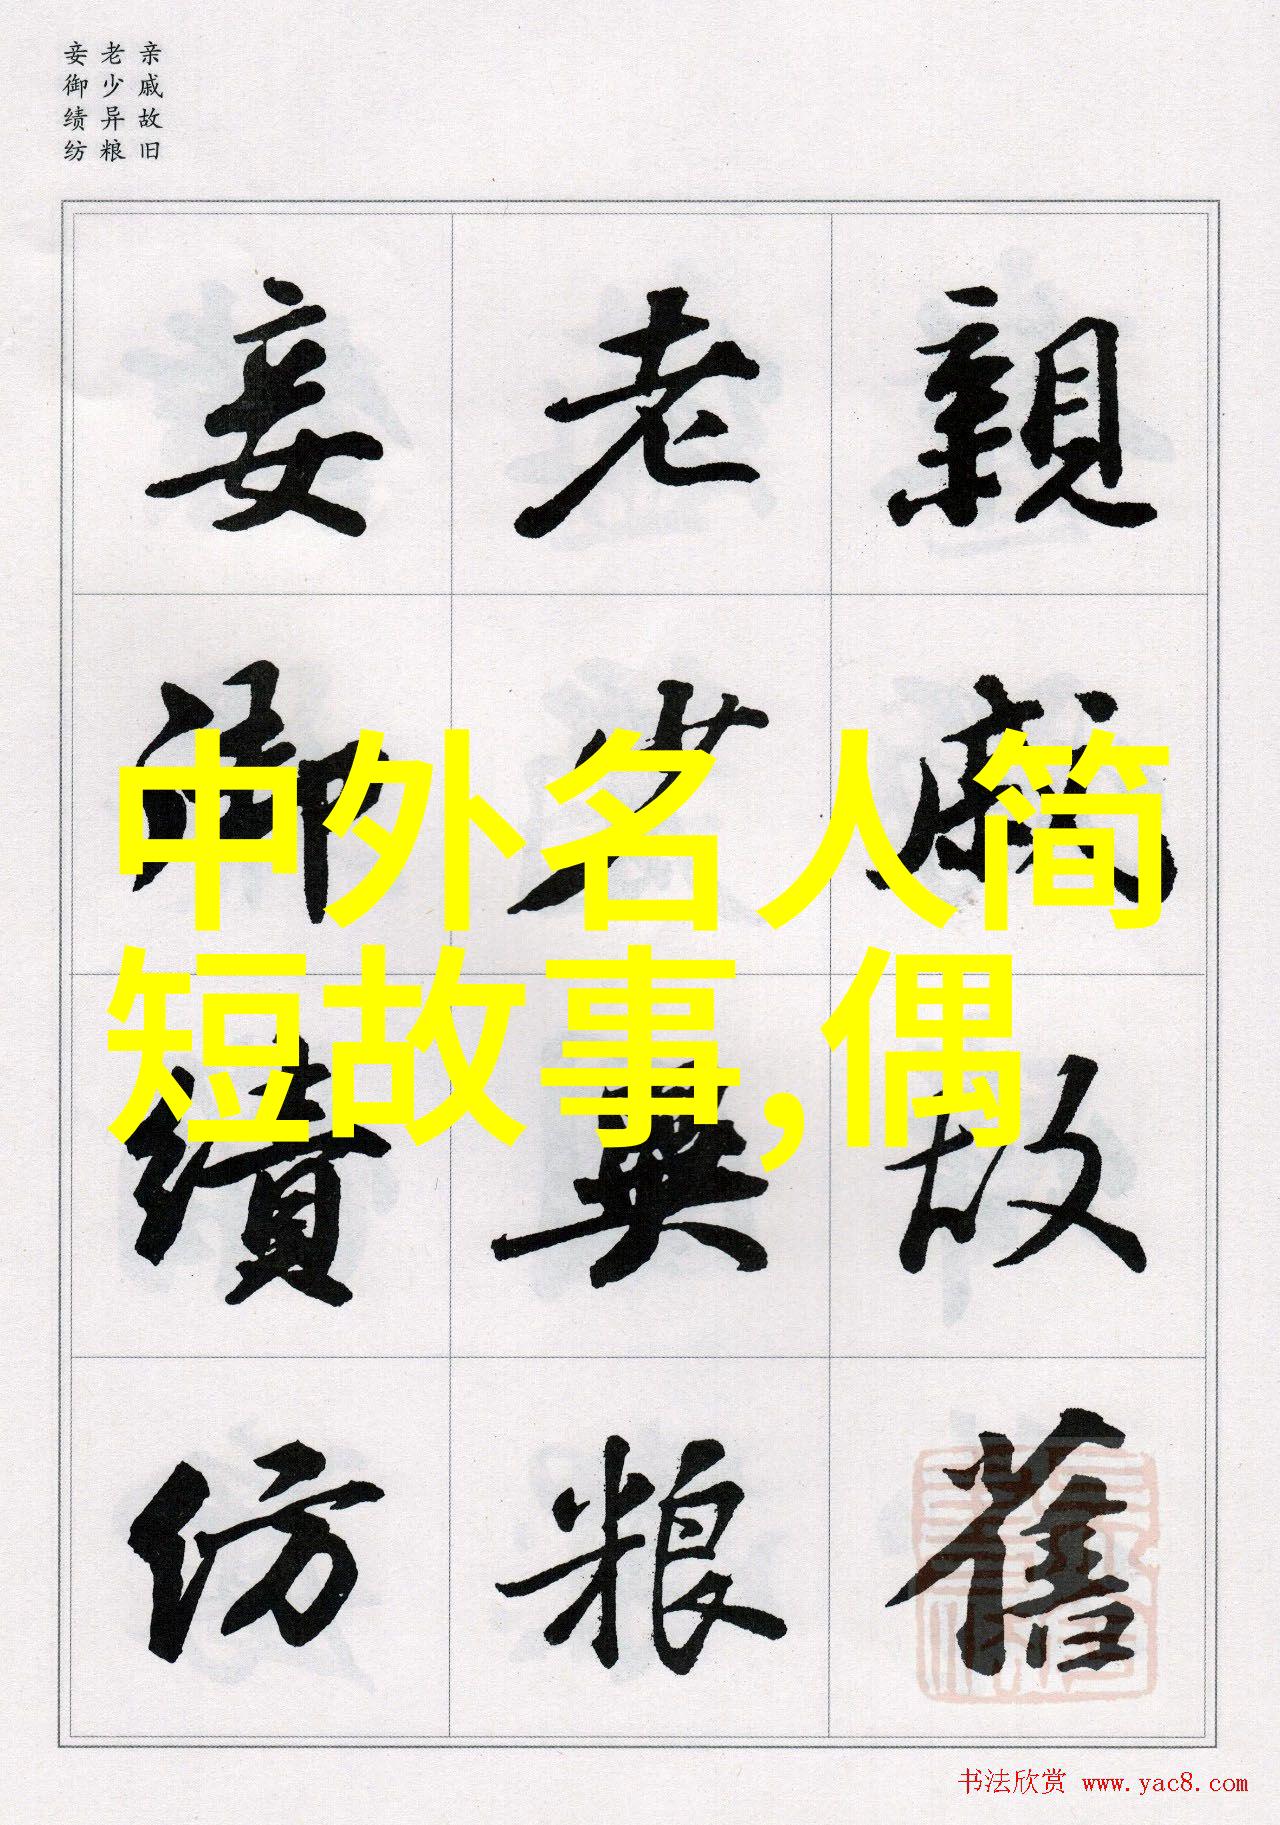 亲戚故旧
老少异粮
妾御绩纺
親戚故舊
老少異粮
妾御績紡
中外名人简
短故事,偶
书法欣赏 www.yac8.com